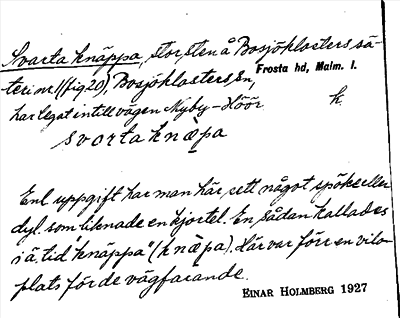 Svarta knäppa, stor sten å Bosjöklosters sä-
teri nr 1 (fig 20), Bosjöklosters sn,
Frosta hd, Malm. l.
har legat intill vägen Nyby-Höör k
svorta knæpa
Enl uppgift har man här sett något spöke eller
dyl. som liknade en kjortel. En sådan kallades
i ä. tid "knäppa" (knæpa). Här var förr en vilo-
plats för de vägfarande.
EINAR HOLMBERG 1927